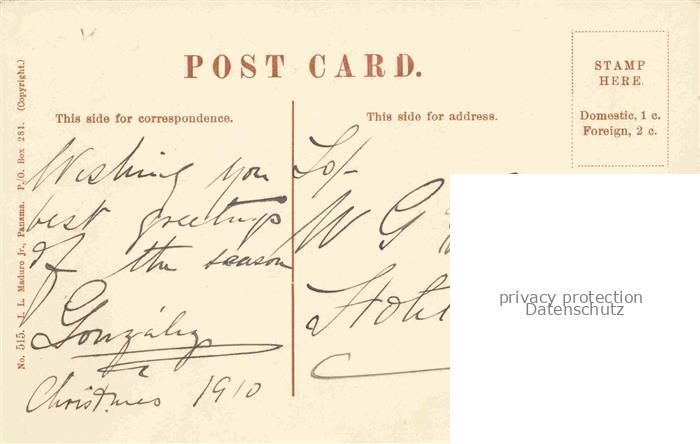 POST CARD.
STAMP
HERE.
Domestic, 1 c.
Foreign, 2 c.
This side for correspondence.
This side for address.
No. 515. J. L. Maduro Jr., Panama. P./O. Box 281. (Copyright.)
Wishing you
best greetings
of the season
González
Christmas 1910
W G
privacy protection
Datenschutz